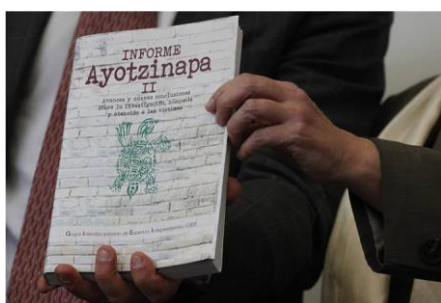 INFORME
Ayotzinapa
II
Avances y nuevas conclusiones
sobre la investigación, búsqueda
y atención a las víctimas
Grupo Interdisciplinario de Expertos Independientes GIEI